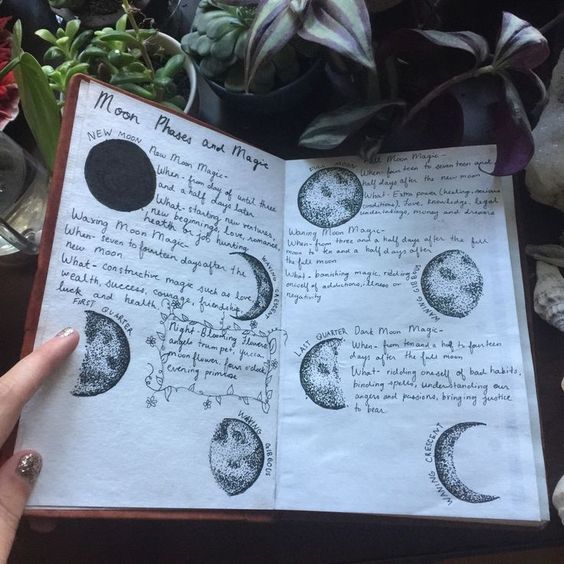 Moon Phases and Magic
NEW MOON
New Moon Magic-
When- from day of until three
and a half days later
What- starting new ventures,
new beginnings, love, romance,
health or job hunting
Waxing Moon Magic-
When- seven to fourteen days after the
new moon
What- constructive magic such as love,
wealth, success, courage, friendship,
luck and health
WAXING CRESCENT
FIRST QUARTER
Night-Blooming Flowers
angels trumpet, yucca
moon flower, four o'clock
evening primrose
WAXING GIBBOUS
FULL MOON
Full Moon Magic-
When- fourteen to seventeen and
half days after the new moon
What- Extra power (healing, serious
conditions), love, knowledge, legal
undertakings, money and dreams
Waning Moon Magic-
When- from three and a half days after the full
moon to ten and a half days after
the full moon
What- banishing magic, ridding
oneself of addictions, illness or
negativity
WANING GIBBOUS
LAST QUARTER
Dark Moon Magic-
When- from ten and a half to fourteen
days after the full moon
What- ridding oneself of bad habits,
binding spells, understanding our
angers and passions, bringing justice
to bear
WANING CRESCENT